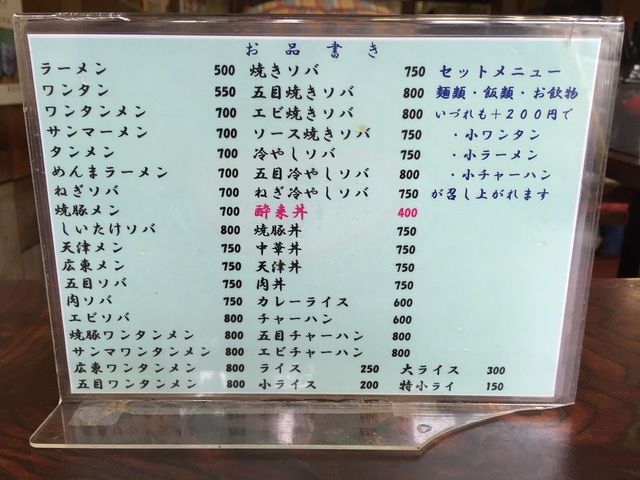 お品書き
ラーメン 500
ワンタン 550
ワンタンメン 700
サンマーメン 700
タンメン 700
めんまラーメン 700
ねぎソバ 700
焼豚メン 700
しいたけソバ 800
天津メン 750
広東メン 750
五目ソバ 750
肉ソバ 750
エビソバ 800
焼豚ワンタンメン 800
サンマワンタンメン 800
広東ワンタンメン 800
五目ワンタンメン 800
焼きソバ 750
五目焼きソバ 800
エビ焼きソバ 800
ソース焼きソバ 750
冷やしソバ 750
五目冷やしソバ 800
ねぎ冷やしソバ 750
酔来丼 400
焼豚丼 750
中華丼 750
天津丼 750
肉丼 750
カレーライス 600
チャーハン 600
五目チャーハン 800
エビチャーハン 800
ライス 250 大ライス 300
小ライス 200 特小ライ 150
セットメニュー
麺類・飯類・お飲物
いづれも+200円で
・小ワンタン
・小ラーメン
・小チャーハン
が召し上がれます